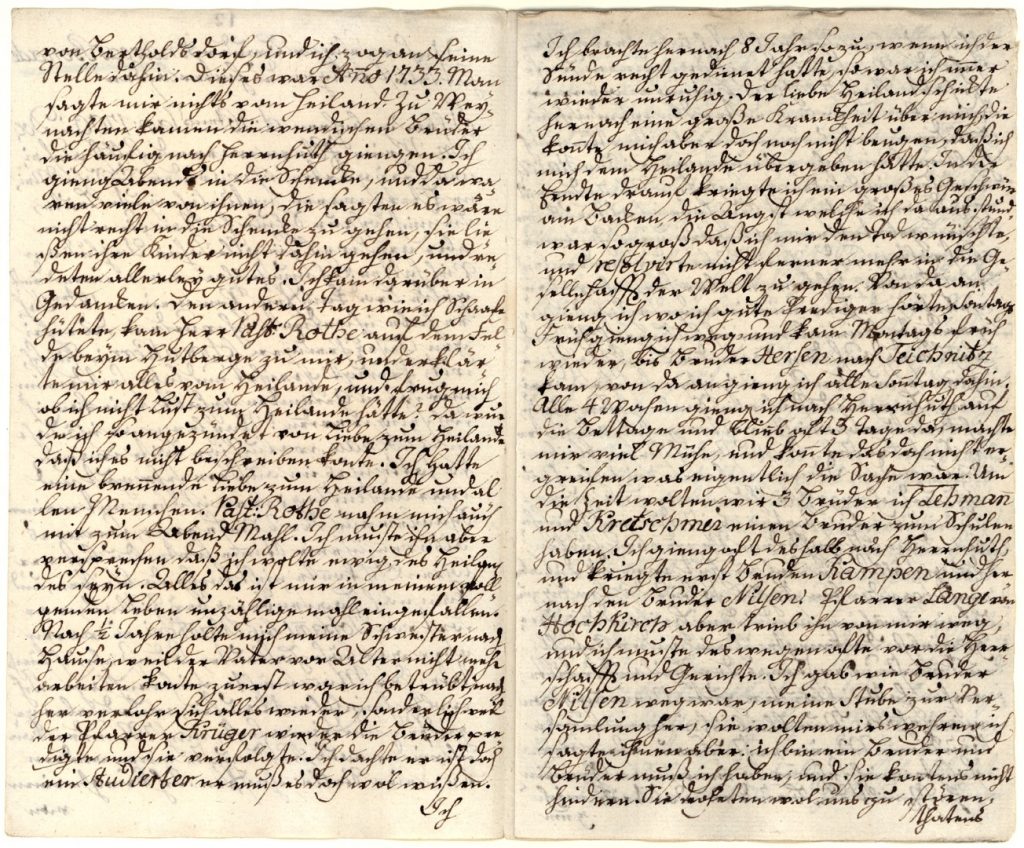 12
von Bertholdsdorf, und ich zog an seine
Stelle dahin. Dieses war Anno 1733. Man
sagte mir nichts vom Heiland. Zu Wey-
nachten kamen die wendischen Brüder
die häufig nach Herrnhuth giengen. Ich
gieng Abends in die Schenke, und da wa-
ren viele von ihnen, die sagten es wäre
nicht recht in die Schenke zu gehen, sie lie-
ßen ihre Kinder nicht dahin gehen, und re-
deten allerley gutes. Ich kam darüber in
Gedanken. Den andern Tag wie ich Schaafe
hütete, kam Herr Past: Rothe auf dem Fel-
de beym Hutberge zu mir, und erklär-
te mir alles vom Heilande, und frug mich
ob ich nicht Lust zum Heilande hätte? da wur-
de ich so angezündet von Liebe zum Heilande
daß ich es nicht beschreiben konte. Ich hatte
eine brennende Liebe zum Heilande und al-
len Menschen. Past: Rothe nahm mich auch
mit zum Abend Mahl. Ich muste ihm aber
versprechen daß ich wolte ewig des Heilan-
des seyn. Alles das ist mir in meinem voll-
genden Leben unzählige mahl eingefallen.
Nach ½ Jahre holte mich meine Schwester nach
Hause, weil der Vater vor Alter nicht mehr
arbeiten konte zuerst war ich betrübt nach
her verlohr sich alles wieder, sonderlich weil
der Pfarrer Krüger wieder die Brüder pre-
digte und sie verfolgte. Ich dachte er ist doch
ein Studierter er muß es doch wol wißen.
Ich
Ich brachte hernach 8 Jahr so zu, wenn ich der
Sünde recht gedienet hatte, so war ich immer
wieder unruhig. Der liebe Heiland schickte
hernach eine große Krankheit über mich die
konte mich aber doch noch nicht beugen, daß ich
mich dem Heilande übergeben hätte. In der
Erndte drauf kriegte ich ein großes Geschwür
am Backen, die Angst welche ich da aus stund
war so groß daß ich mir den Tod wünschte,
und resolvirte nicht ferner mehr in die Ge-
sellschafft der Welt zu gehen. Von da an
gieng ich wo ich gute Prediger hörte, Sontags
Früh gieng ich weg und kam Montags früh
wieder, bis Bruder Hersen nach Teichnitz
kam, von da an gieng ich alle Sonntag dahin.
Alle 4 Wochen gieng ich nach Herrnhuth auf
die Bettage und blieb oft 3 Tage da, machte
mir viel Mühe, und konte das doch nicht er-
greifen was eigentlich die Sache war. Um
die Zeit wolten wir 3 Brüder ich Lehman
und Kretschmer einen Bruder zum Schulen
haben. Ich gieng oft deshalb nach Herrnhuth,
und kriegte erst Bruder Kampen und her-
nach den Bruder Nilsen. Pfarrer Lange von
Hochkirch aber trieb ihn von mir weg,
und ich muste deswegen ofte vor die Herr-
schafft und Gerichte. Ich gab wie Bruder
Nilsen weg war, meine Stube zur Ver-
samlung her, sie wolten mirs wehren, ich
sagte ihnen aber: ich bin ein Bruder und
Brüder muß ich haben, und sie kontens nicht
hindern. Sie droheten wol uns zu stören,
thatens